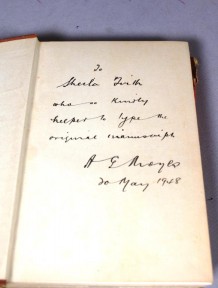 To
Sheila Firth
who so kindly
helped to type the
original manuscript
A E Noyes
20 May 1948